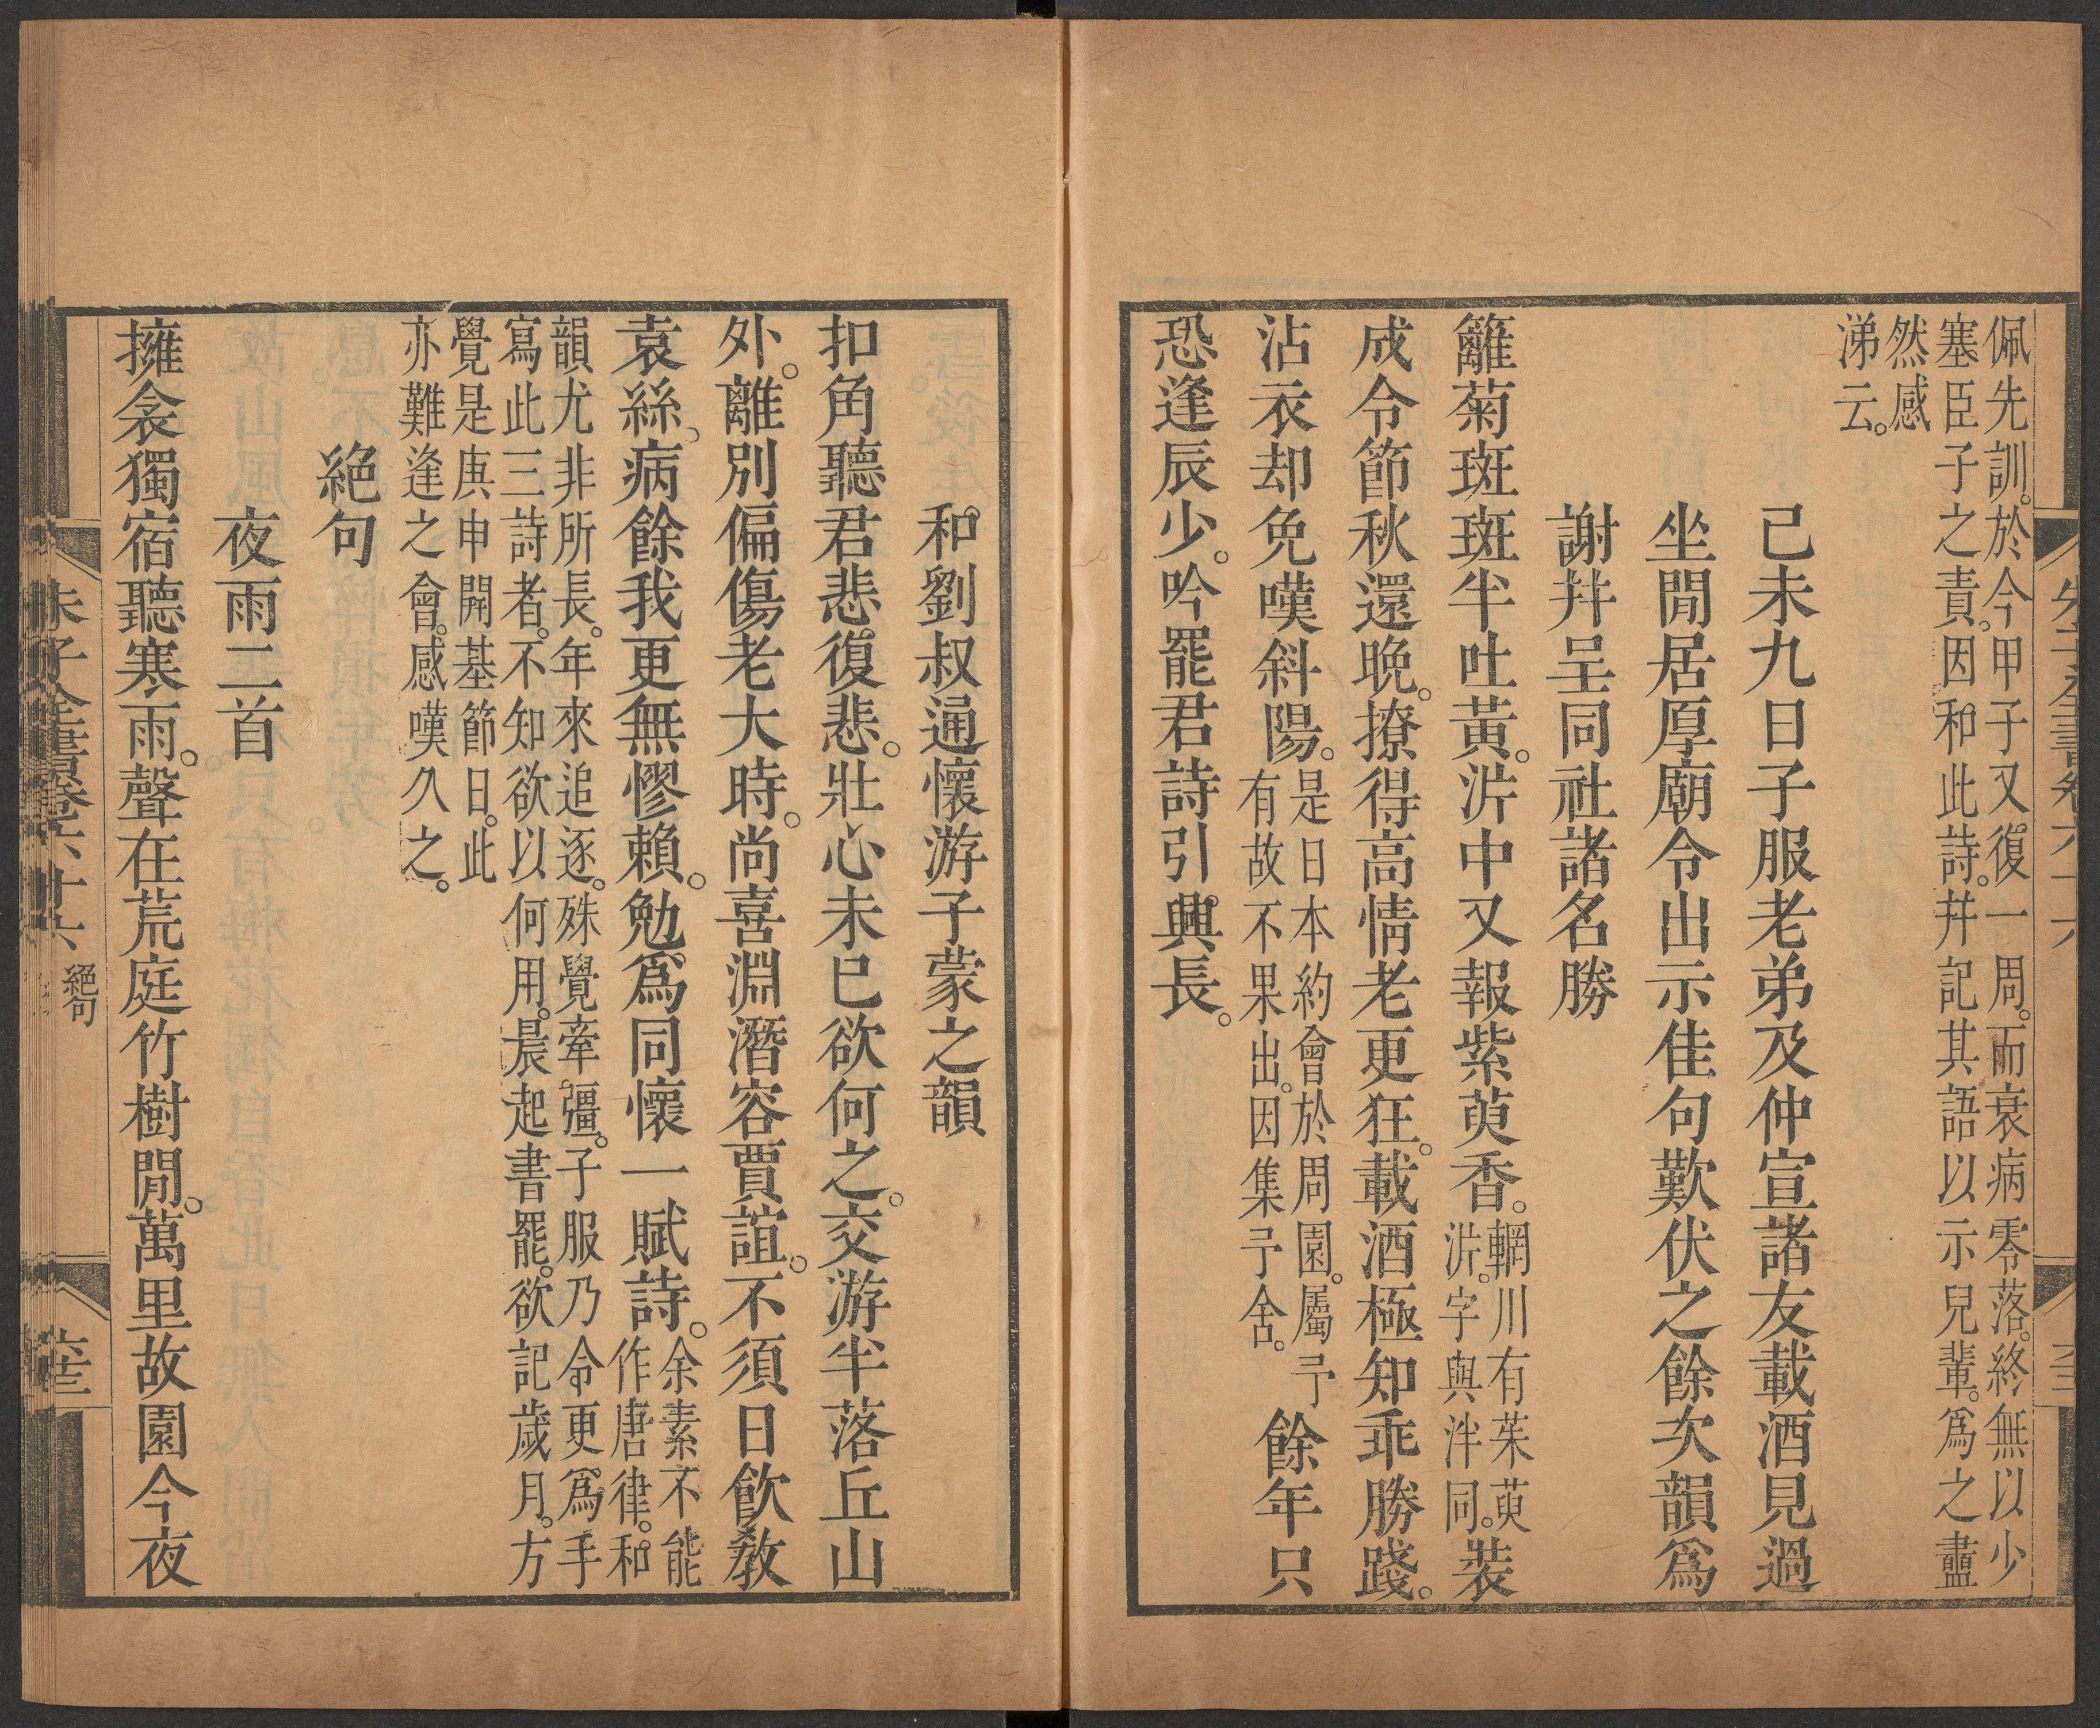 佩先訓。於今甲子又復一周。而衰病零落。終無以少
塞臣子之責。因和此詩。幷記其語以示兒輩。爲之衋
然感
涕云。
己未九日子服老弟及仲宣諸友載酒見過
坐閒居厚廟令出示佳句歎伏之餘次韻爲
謝幷呈同社諸名勝
籬菊斑斑半吐黃。㳎中又報紫萸香。輞川有茱萸
㳎。字與泮同。裝
成令節秋還晚。撩得高情老更狂。載酒極知乖勝踐。
沾衣却免嘆斜陽。是日本約會於周園。屬予
有故不果出。因集予舍。餘年只
恐逢辰少。吟罷君詩引興長。
和劉叔通懷游子蒙之韻
扣角聽君悲復悲。壯心未已欲何之。交游半落丘山
外。離別偏傷老大時。尚喜淵潛容賈誼。不須日飲敎
袁絲。病餘我更無憀賴。勉爲同懷一賦詩。余素不能
作唐律。和
韻尤非所長。年來追逐。殊覺牽彊。子服乃令更爲手
寫此三詩者。不知欲以何用。晨起書罷。欲記歲月。方
覺是庚申開基節日。此
亦難逢之會。感嘆久之。
絕句
夜雨二首
擁衾獨宿聽寒雨。聲在荒庭竹樹閒。萬里故園今夜
朱子全書卷六十六
絕句